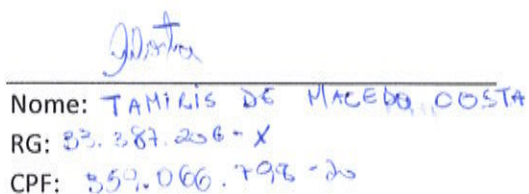 Nome: TAMIRIS DE MACEDO COSTA
RG: 33.387.206-X
CPF: 359.066.798-20